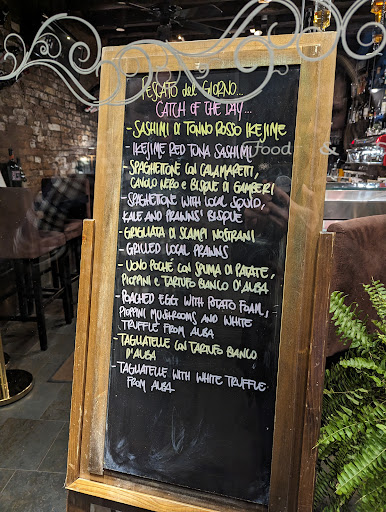 PESCATO del GIORNO...
CATCH OF THE DAY...
- SASHIMI DI TONNO ROSSO IKEJIME
- IKEJIME RED TUNA SASHIMI
food &
- SPAGHETTONE CON CALAMARETTI,
CAVOLO NERO E BISQUE DI GAMBERI
- SPAGHETTONE WITH LOCAL SQUID,
KALE AND PRAWNS' BISQUE
- GRIGLIATA DI SCAMPI NOSTRANI
- GRILLED LOCAL PRAWNS
- UOVO POCHÉ CON SPUMA DI PATATE,
PIOPPINI E TARTUFO BIANCO D'ALBA
- POACHED EGG WITH POTATO FOAM,
PIOPPINI MUSHROOMS AND WHITE
TRUFFLE FROM ALBA
- TAGLIATELLE CON TARTUFO BIANCO
D'ALBA
- TAGLIATELLE WITH WHITE TRUFFLE
FROM ALBA